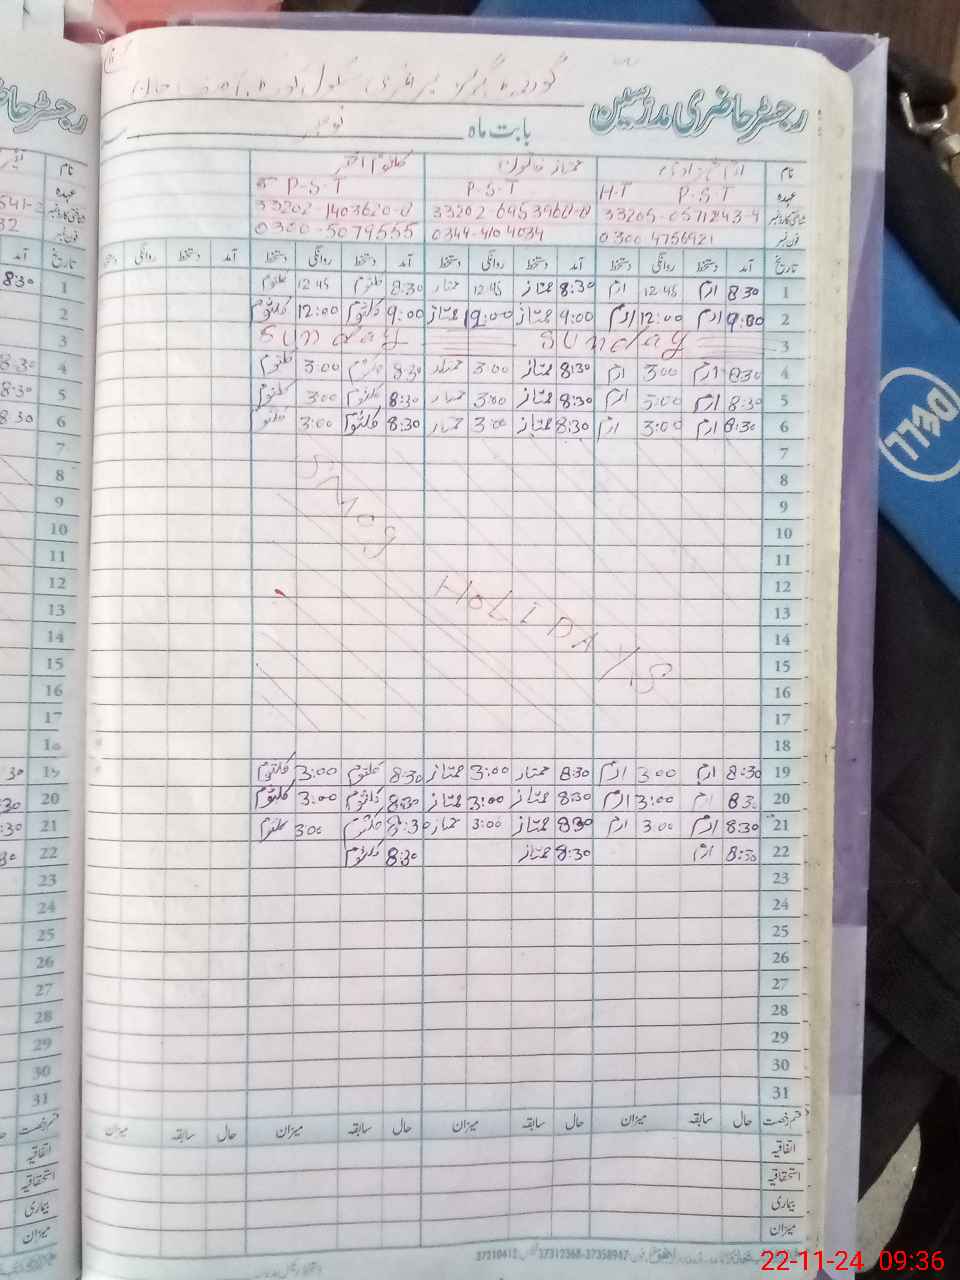 رجسٹر حاضری مدرسین
بابت ماہ نومبر
نام
عہدہ P-S-T H-T P-S-T P-S-T
شناختی کارڈ نمبر 33202-1403620-0
فون نمبر 0300 4756921 0344-410 4034 0300-5079555
تاریخ آمد دستخط روانگی دستخط آمد دستخط روانگی دستخط آمد دستخط روانگی دستخط آمد دستخط روانگی دستخط
1 8:30 ارم 12:45 ارم 8:30 ممتاز 12:45 ممتاز 8:30 کلثوم 12:45 کلثوم
2 9:00 ارم 12:00 ارم 9:00 ممتاز 12:00 ممتاز 9:00 کلثوم 12:00 کلثوم
3 Sunday Sunday
4 8:30 ارم 3:00 ارم 8:30 ممتاز 3:00 ممتاز 8:30 کلثوم 3:00 کلثوم
5 8:30 ارم 3:00 ارم 8:30 ممتاز 3:00 ممتاز 8:30 کلثوم 3:00 کلثوم
6 8:30 ارم 3:00 ارم 8:30 ممتاز 3:00 ممتاز 8:30 کلثوم 3:00 کلثوم
7
8
9
10
11
12
13
14
15
16
17
18
SMOG HOLIDAYS
19 8:30 ارم 3:00 ارم 8:30 ممتاز 3:00 ممتاز 8:30 کلثوم 3:00 کلثوم
20 8:30 ارم 3:00 ارم 8:30 ممتاز 3:00 ممتاز 8:30 کلثوم 3:00 کلثوم
21 8:30 ارم 3:00 ارم 8:30 ممتاز 3:00 ممتاز 8:30 کلثوم 3:00 کلثوم
22 8:30 ارم 8:30 ممتاز 8:30 کلثوم
23
24
25
26
27
28
29
30
31
قسم رخصت حال سابقہ میزان حال سابقہ میزان حال سابقہ میزان حال سابقہ میزان
اتفاقیہ
استحقاقیہ
بیماری
میزان
37310412 37312368-37358947
DELL
22-11-24 09:36